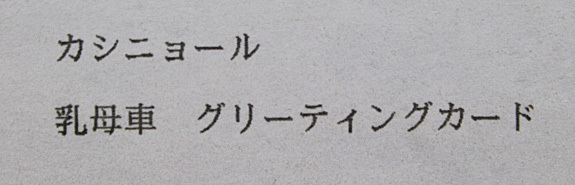 カシニョール
乳母車　グリーティングカード